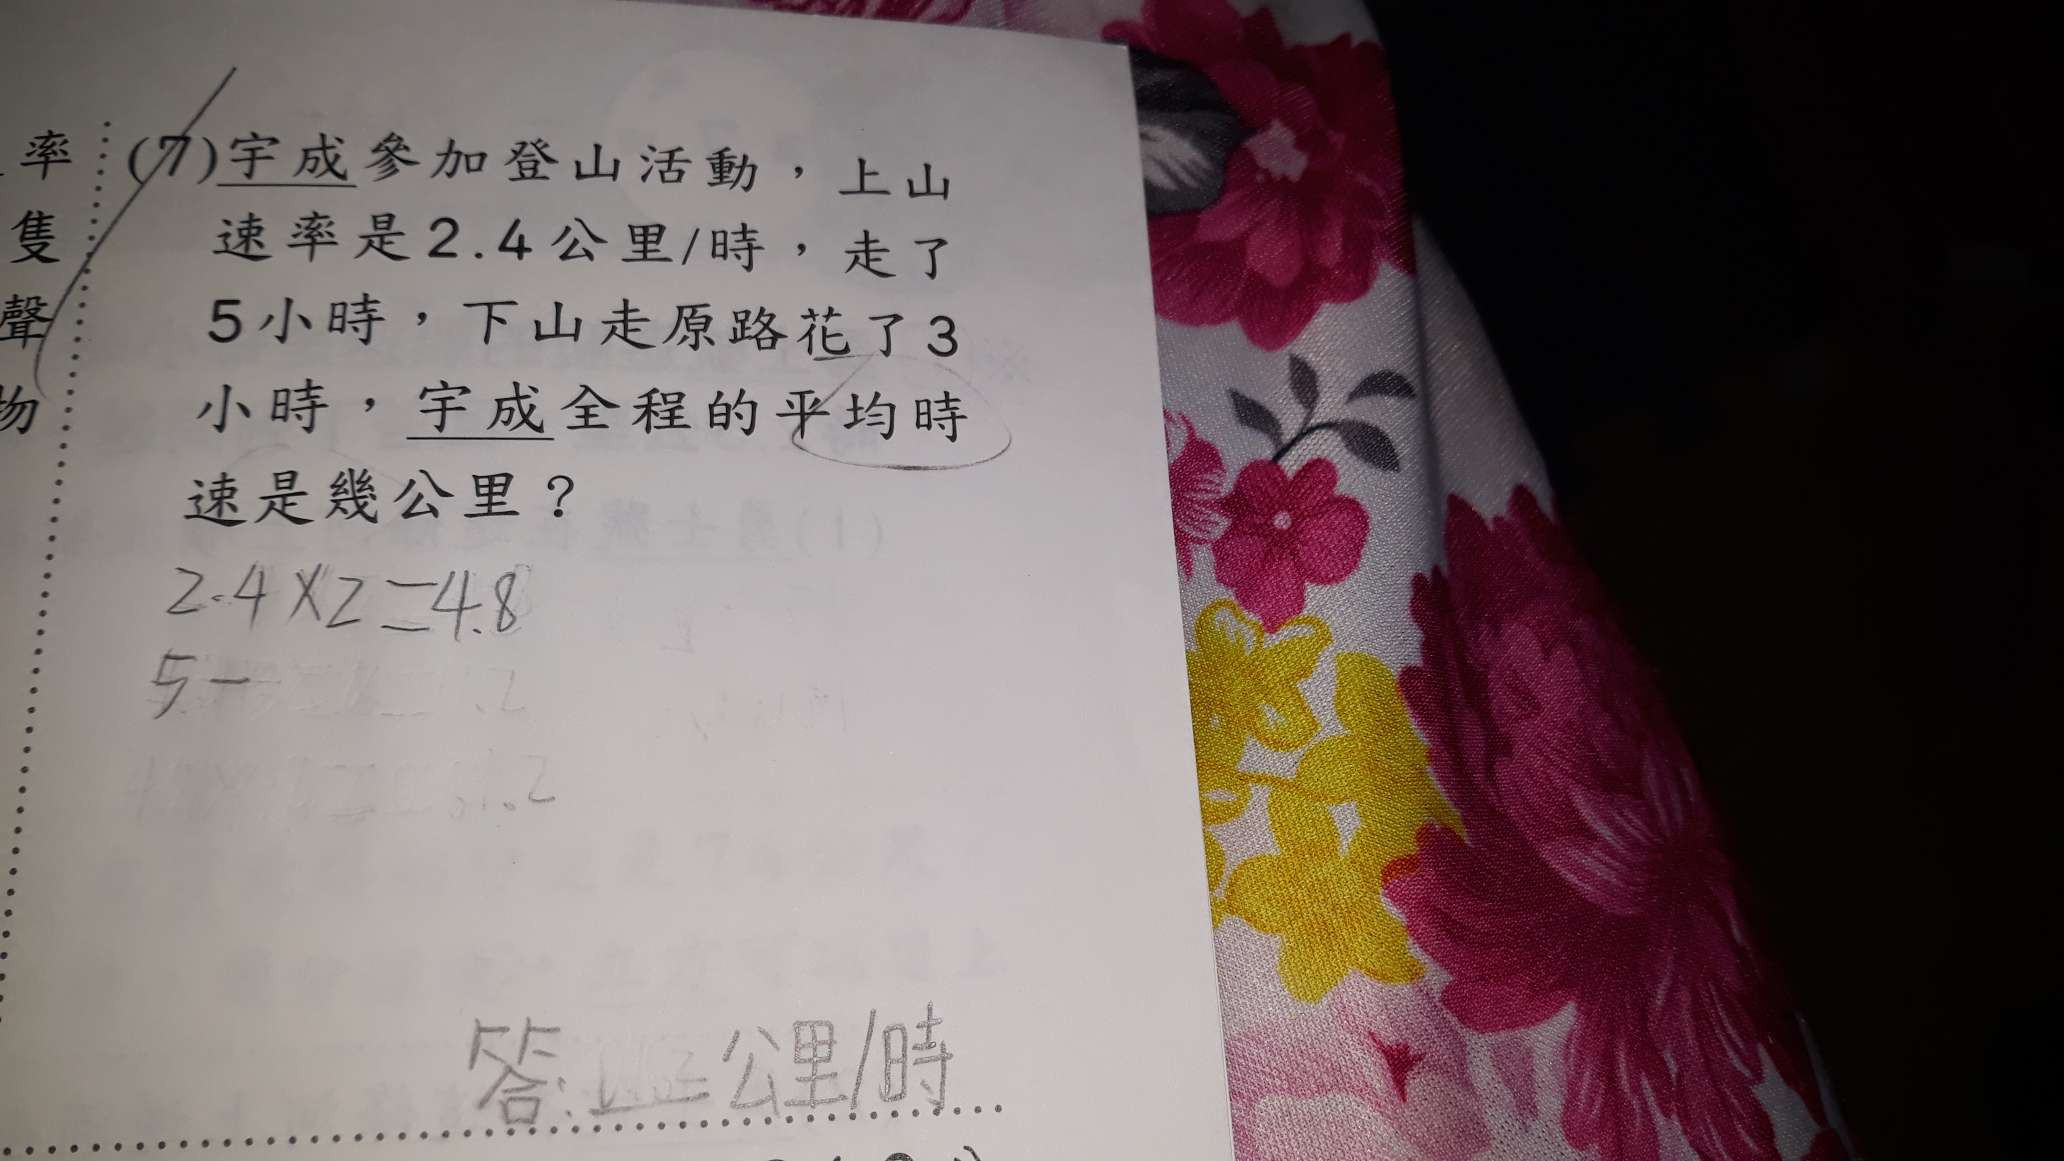 率
隻
聲
物
(7)宇成參加登山活動，上山
速率是2.4公里/時，走了
5小時，下山走原路花了3
小時，宇成全程的平均時
速是幾公里？
2.4×2=4.8
5-
答:公里/時